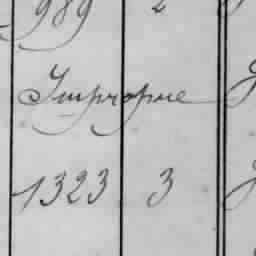 989 2
Impropne
1323 3